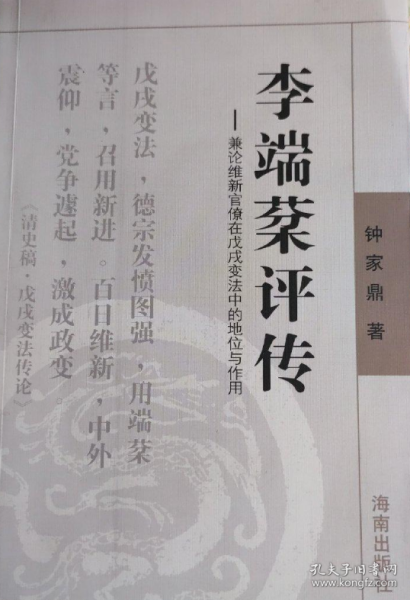 李端棻评传
——兼论维新官僚在戊戌变法中的地位与作用
钟家鼎 著
海南出版社
戊戌变法，德宗发愤图强，用端棻
等言，召用新进。百日维新，中外
震仰，党争遽起，激成政变。
《清史稿·戊戌变法传论》
孔夫子旧书网